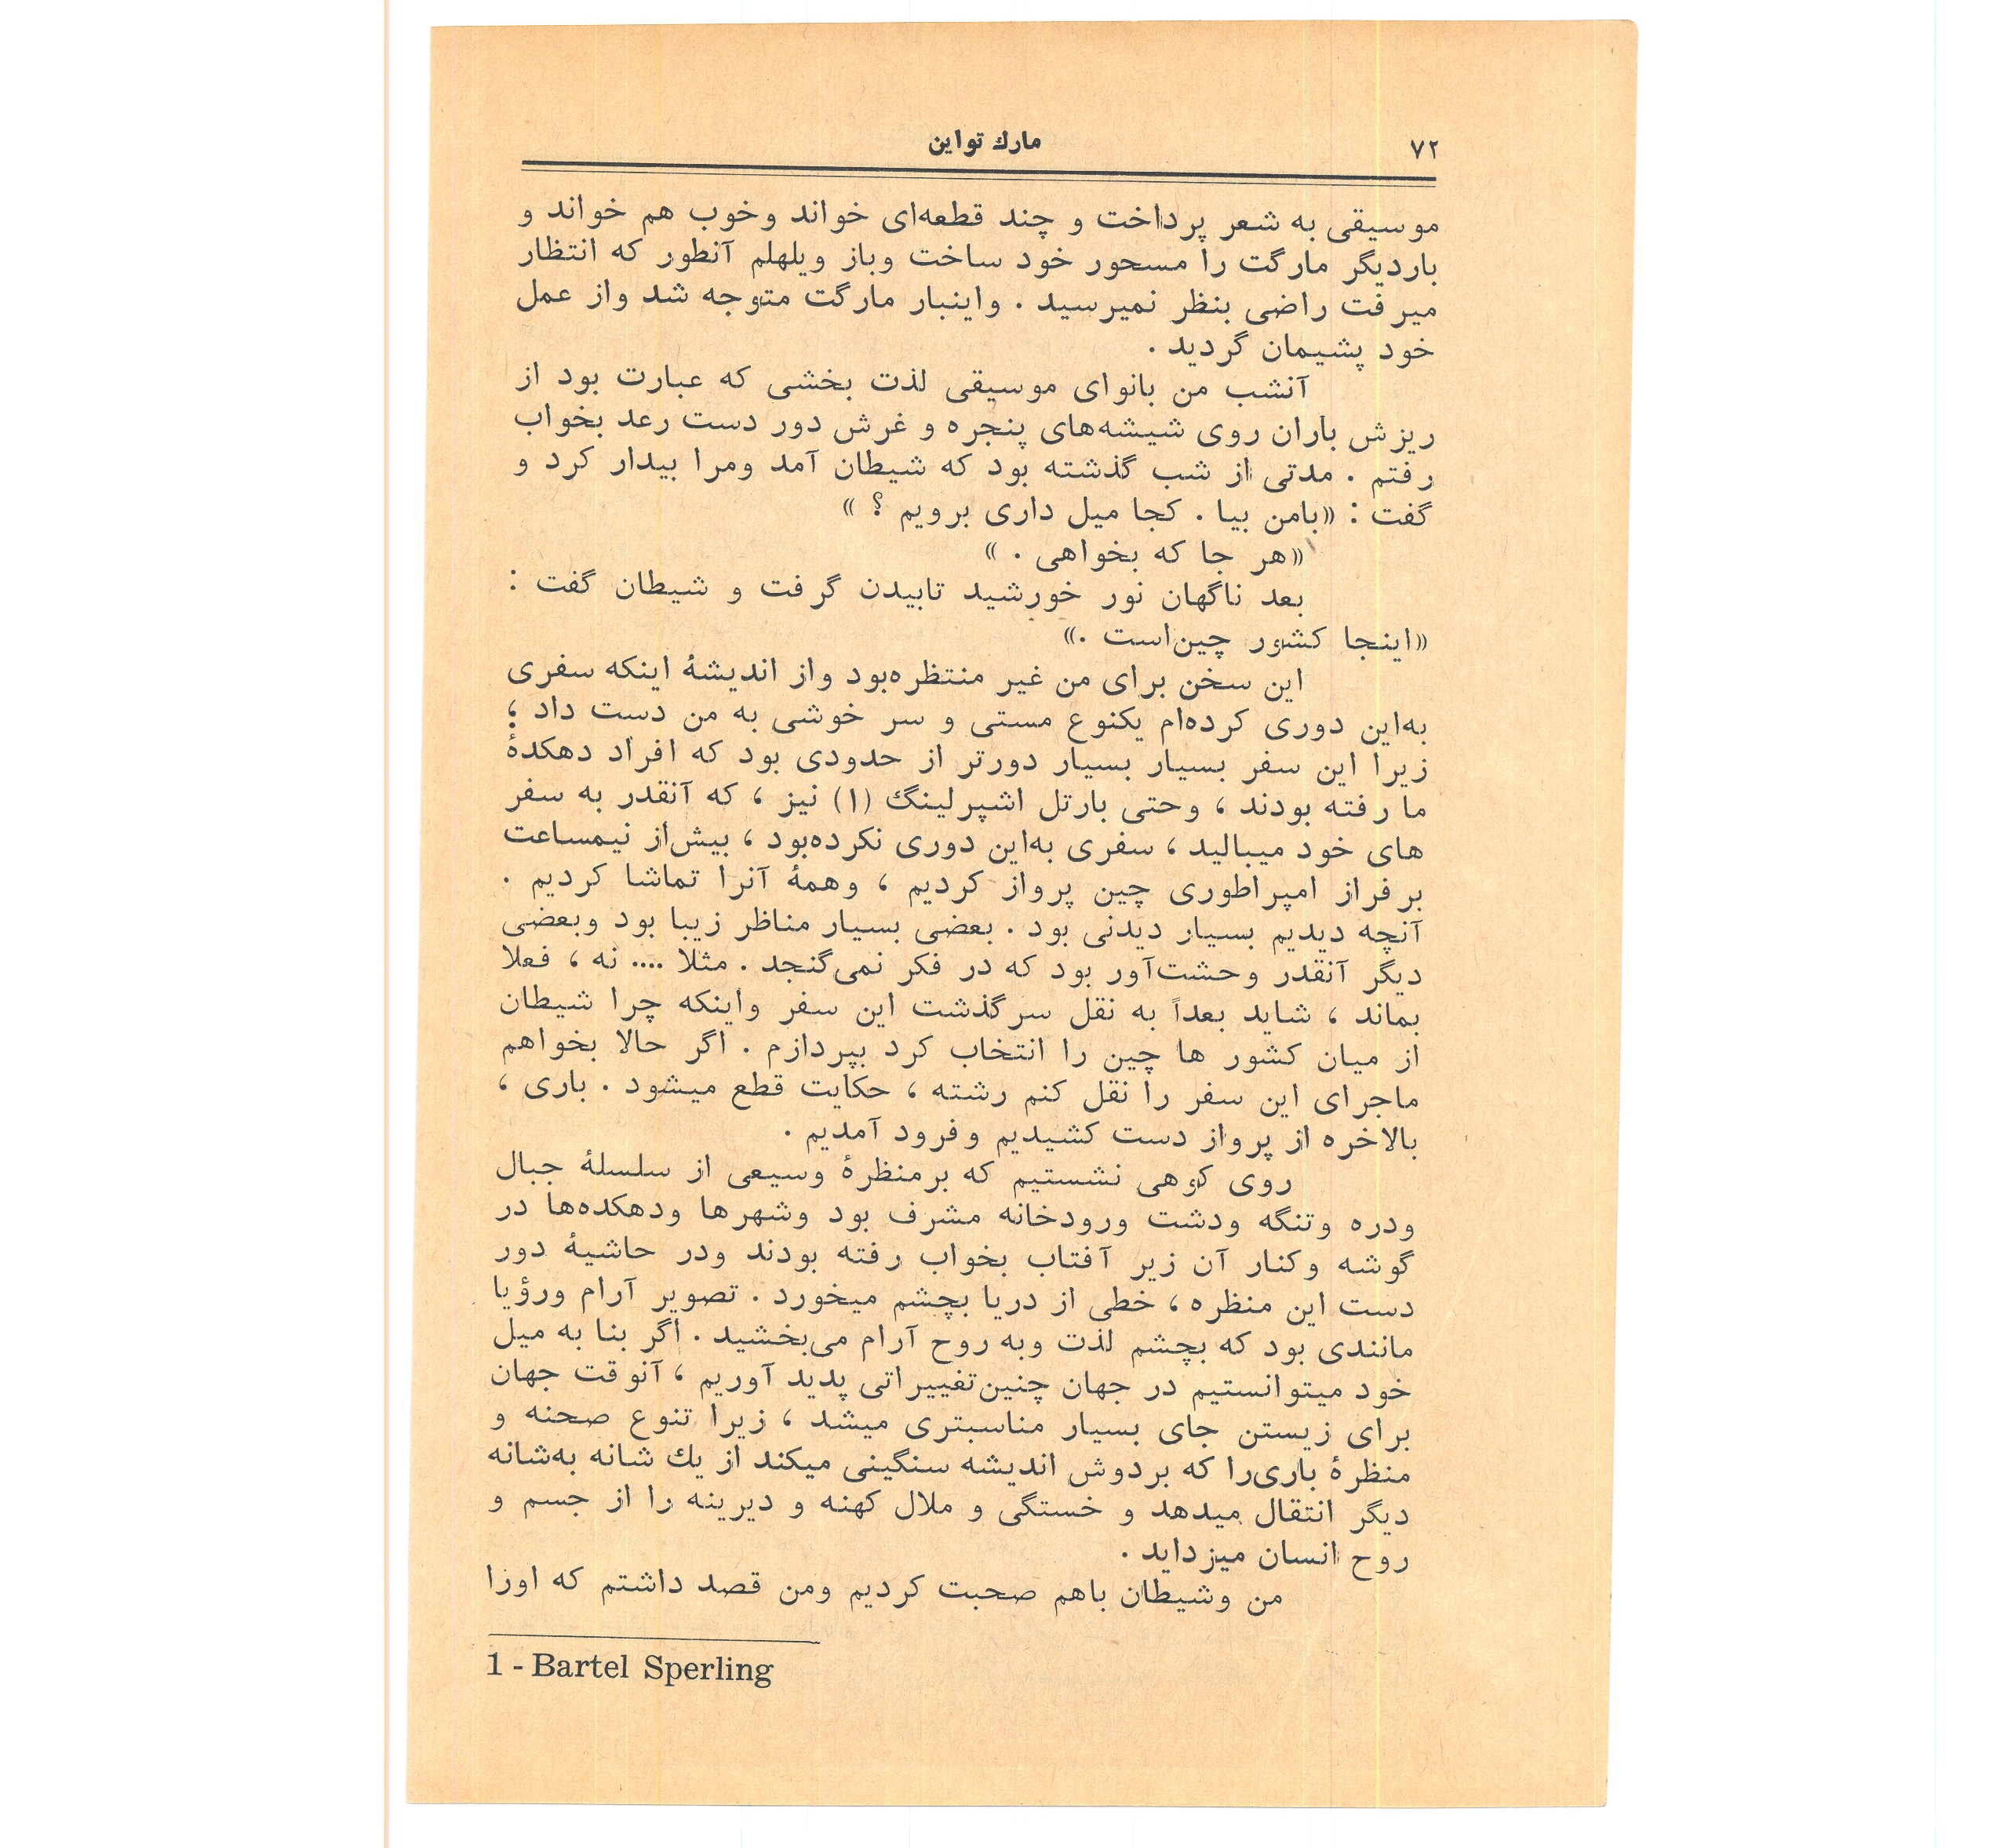 ۷۲
مارك تواین
موسیقی به شعر پرداخت و چند قطعه‌ای خواند وخوب هم خواند و
باردیگر مارگت را مسحور خود ساخت وباز ویلهلم آنطور که انتظار
میرفت راضی بنظر نمیرسید . واینبار مارگت متوجه شد واز عمل
خود پشیمان گردید .
آنشب من بانوای موسیقی لذت بخشی که عبارت بود از
ریزش باران روی شیشه‌های پنجره و غرش دور دست رعد بخواب
رفتم . مدتی از شب گذشته بود که شیطان آمد ومرا بیدار کرد و
گفت : «بامن بیا . کجا میل داری برویم ؟ »
«هر جا که بخواهی . »
بعد ناگهان نور خورشید تابیدن گرفت و شیطان گفت :
«اینجا کشور چین‌است .»
این سخن برای من غیر منتظره‌بود واز اندیشهٔ اینکه سفری
به‌این دوری کرده‌ام یکنوع مستی و سر خوشی به من دست داد ؛
زیرا این سفر بسیار بسیار دورتر از حدودی بود که افراد دهکدهٔ
ما رفته بودند ، وحتی بارتل اشپرلینگ (۱) نیز ، که آنقدر به سفر
های خود میبالید ، سفری به‌این دوری نکرده‌بود ، بیش‌از نیمساعت
برفراز امپراطوری چین پرواز کردیم ، وهمهٔ آنرا تماشا کردیم .
آنچه دیدیم بسیار دیدنی بود . بعضی بسیار مناظر زیبا بود وبعضی
دیگر آنقدر وحشت‌آور بود که در فکر نمی‌گنجد . مثلا .... نه ، فعلا
بماند ، شاید بعداً به نقل سرگذشت این سفر واینکه چرا شیطان
از میان کشور ها چین را انتخاب کرد بپردازم . اگر حالا بخواهم
ماجرای این سفر را نقل کنم رشته ، حکایت قطع میشود . باری ،
بالاخره از پرواز دست کشیدیم وفرود آمدیم .
روی کوهی نشستیم که برمنظرهٔ وسیعی از سلسلهٔ جبال
ودره وتنگه ودشت ورودخانه مشرف بود وشهرها ودهکده‌ها در
گوشه وکنار آن زیر آفتاب بخواب رفته بودند ودر حاشیهٔ دور
دست این منظره ، خطی از دریا بچشم میخورد . تصویر آرام ورؤیا
مانندی بود که بچشم لذت وبه روح آرام می‌بخشید . اگر بنا به میل
خود میتوانستیم در جهان چنین‌تغییراتی پدید آوریم ، آنوقت جهان
برای زیستن جای بسیار مناسبتری میشد ، زیرا تنوع صحنه و
منظرهٔ باری‌را که بردوش اندیشه سنگینی میکند از یك شانه به‌شانه
دیگر انتقال میدهد و خستگی و ملال کهنه و دیرینه را از جسم و
روح انسان میزداید .
من وشیطان باهم صحبت کردیم ومن قصد داشتم که اورا
1 - Bartel Sperling